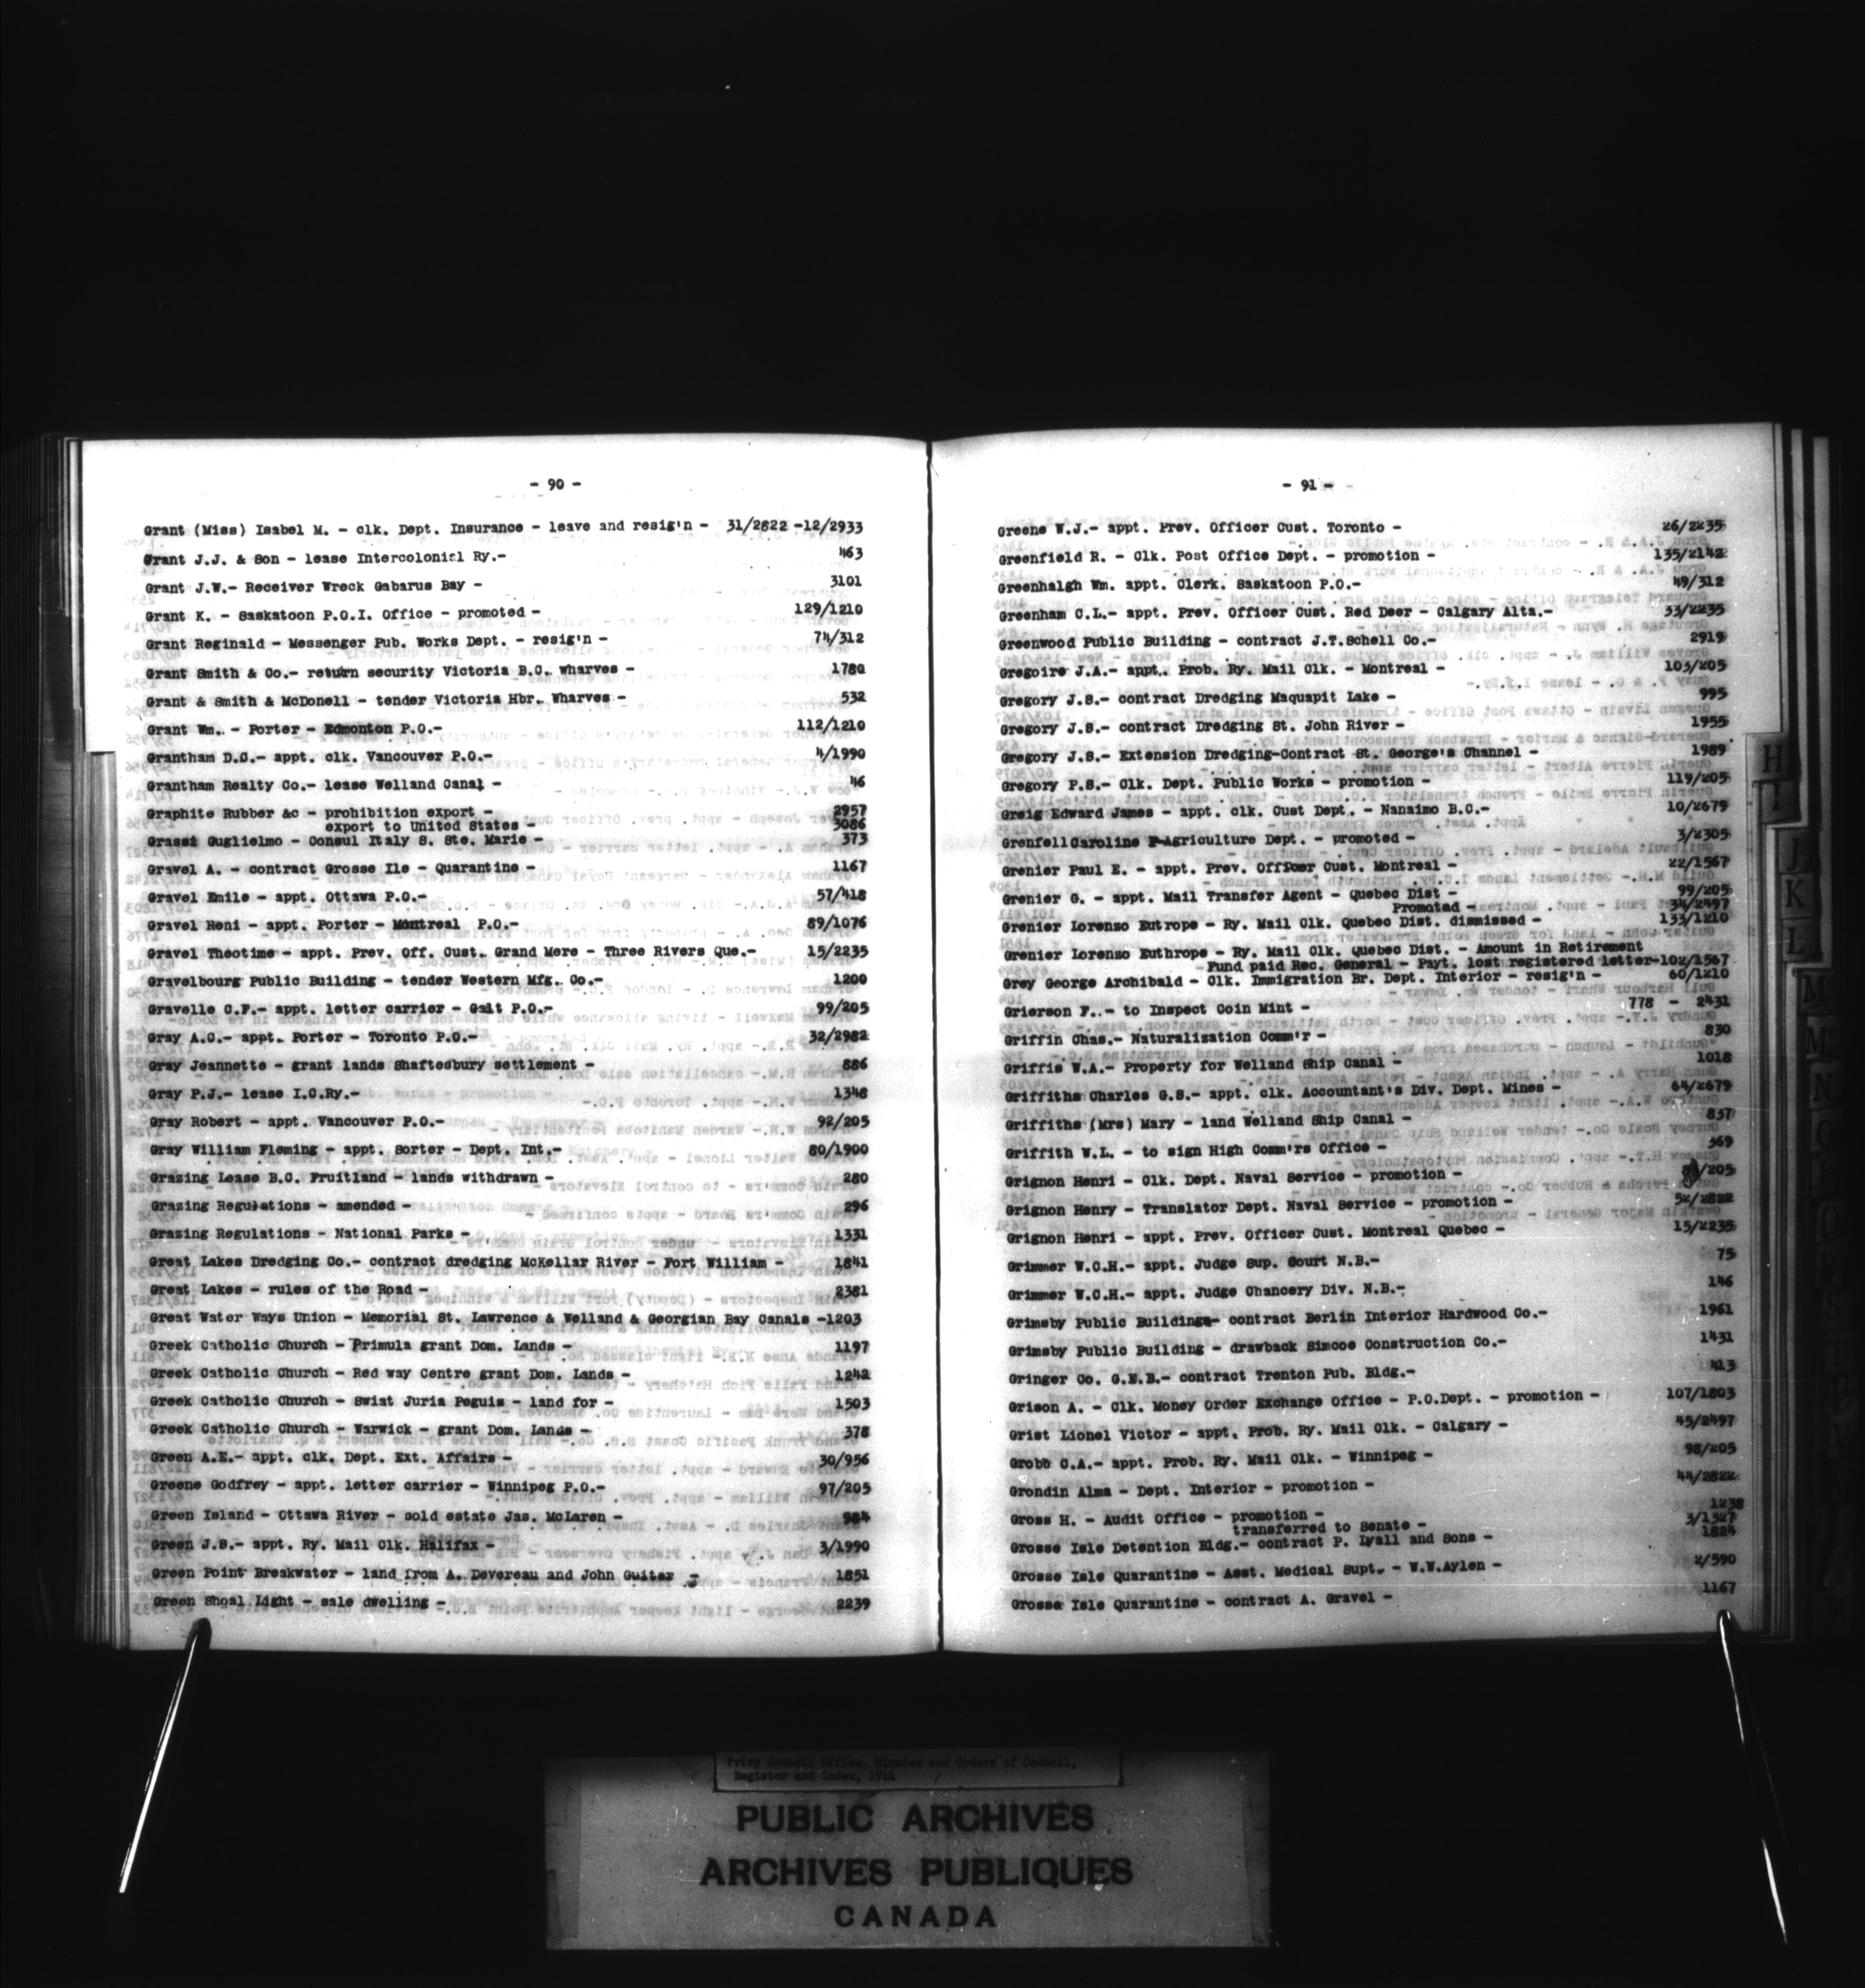 - 90 -
Grant (Miss) Isabel M. - clk. Dept. Insurance - leave and resig'n - 31/2822 -12/2933
Grant J.J. & Son - lease Intercolonial Ry.- 463
Grant J.W.- Receiver Wreck Gabarus Bay - 3101
Grant K. - Saskatoon P.O.I. Office - promoted - 129/1210
Grant Reginald - Messenger Pub. Works Dept. - resig'n - 74/312
Grant Smith & Co.- return security Victoria B.C. wharves - 1780
Grant & Smith & McDonell - tender Victoria Hbr. Wharves - 532
Grant Wm. - Porter - Edmonton P.O.- 112/1210
Grantham D.C.- appt. clk. Vancouver P.O.- 4/1990
Grantham Realty Co.- lease Welland Canal - 46
Graphite Rubber &c - prohibition export - 2957
export to United States - 3086
Grassi Guglielmo - Consul Italy S. Ste. Marie - 373
Gravel A. - contract Grosse Ile - Quarantine - 1167
Gravel Emile - appt. Ottawa P.O.- 57/418
Gravel Reni - appt. Porter - Montreal P.O.- 89/1076
Gravel Theotime - appt. Prev. Off. Cust. Grand Mere - Three Rivers Que.- 15/2235
Gravelbourg Public Building - tender Western Mfg. Co.- 1200
Gravelle C.F.- appt. letter carrier - Galt P.O.- 99/205
Gray A.C.- appt. Porter - Toronto P.O.- 32/2982
Gray Jeannette - grant lands Shaftesbury settlement - 886
Gray P.J.- lease I.C.Ry.- 1348
Gray Robert - appt. Vancouver P.O.- 92/205
Gray William Fleming - appt. Sorter - Dept. Int.- 80/1900
Grazing Lease B.C. Fruitland - lands withdrawn - 280
Grazing Regulations - amended - 296
Grazing Regulations - National Parks - 1331
Great Lakes Dredging Co.- contract dredging McKellar River - Fort William - 1841
Great Lakes - rules of the Road - 2381
Great Water Ways Union - Memorial St. Lawrence & Welland & Georgian Bay Canals -1203
Greek Catholic Church - Primula grant Dom. Lands - 1197
Greek Catholic Church - Red way Centre grant Dom. Lands - 1242
Greek Catholic Church - Swiat Juria Peguis - land for - 1503
Greek Catholic Church - Warwick - grant Dom. Lands - 378
Green A.E.- appt. clk. Dept. Ext. Affairs - 30/956
Greene Godfrey - appt. letter carrier - Winnipeg P.O.- 97/205
Green Island - Ottawa River - sold estate Jas. McLaren -
Green J.S.- appt. Ry. Mail Clk. Halifax - 3/1990
Green Point Breakwater - land from A. Devereau and John Guitar - 1851
Green Shoal Light - sale dwelling - 2239
- 91 -
Greene W.J.- appt. Prev. Officer Cust. Toronto - 26/2235
Greenfield R. - Clk. Post Office Dept. - promotion - 135/2142
Greenhalgh Wm. appt. Clerk. Saskatoon P.O.- 49/312
Greenham C.L.- appt. Prev. Officer Cust. Red Deer - Calgary Alta.- 33/2235
Greenwood Public Building - contract J.T.Schell Co.- 2919
Gregoire J.A.- appt. Prob. Ry. Mail Clk. - Montreal - 103/205
Gregory J.S.- contract Dredging Maquapit Lake - 995
Gregory J.S.- contract Dredging St. John River - 1955
Gregory J.S.- Extension Dredging-Contract St. George's Channel - 1989
Gregory P.S.- Clk. Dept. Public Works - promotion - 119/205
Greig Edward James - appt. clk. Cust Dept. - Nanaimo B.C.- 10/2679
Grenfell Caroline F-Agriculture Dept. - promoted - 3/2305
Grenier Paul E. - appt. Prev. Officer Cust. Montreal - 22/1567
Grenier G. - appt. Mail Transfer Agent - Quebec Dist - 99/205
Promoted - 34/2497
Grenier Lorenzo Eutrope - Ry. Mail Clk. Quebec Dist. dismissed - 133/1210
Grenier Lorenzo Euthrope - Ry. Mail Clk. Quebec Dist. - Amount in Retirement
Fund paid Rec. General - Payt. lost registered letter-102/1567
Grey George Archibald - Clk. Immigration Br. Dept. Interior - resig'n - 60/1210
Grierson F.- to Inspect Coin Mint - 778 - 2431
Griffin Chas.- Naturalization Comm'r - 830
Griffis W.A.- Property for Welland Ship Canal - 1018
Griffiths Charles G.S.- appt. clk. Accountant's Div. Dept. Mines - 64/2679
Griffiths (Mrs) Mary - land Welland Ship Canal - 837
Griffith W.L. - to sign High Comm'rs Office - 369
Grignon Henri - Clk. Dept. Naval Service - promotion - /205
Grignon Henry - Translator Dept. Naval Service - promotion - 52/2822
Grignon Henri - appt. Prev. Officer Cust. Montreal Quebec - 15/2235
Grimmer W.C.H.- appt. Judge Sup. Court N.B.- 75
Grimmer W.C.H.- appt. Judge Chancery Div. N.B.- 146
Grimsby Public Buildings- contract Berlin Interior Hardwood Co.- 1961
Grimsby Public Building - drawback Simcoe Construction Co.- 1431
Gringer Co. G.N.B.- contract Trenton Pub. Bldg.- 413
Grison A. - Clk. Money Order Exchange Office - P.O.Dept. - promotion - 107/1803
Grist Lionel Victor - appt. Prob. Ry. Mail Clk. - Calgary - 45/2497
Grobb C.A.- appt. Prob. Ry. Mail Clk. - Winnipeg - 98/205
Grondin Alma - Dept. Interior - promotion - 44/2822
1238
Gross H. - Audit Office - promotion - 3/1327
transferred to Senate - 1824
Grosse Isle Detention Bldg.- contract P. Lyall and Sons -
Grosse Isle Quarantine - Asst. Medical Supt. - W.W.Aylen - 2/590
Grosse Isle Quarantine - contract A. Gravel - 1167
H
I
J
K
L
M
Privy Council Office, Minutes and Orders of Council,
Register and Index, 1914
PUBLIC ARCHIVES
ARCHIVES PUBLIQUES
CANADA